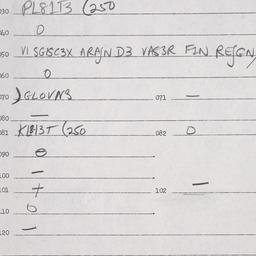 030 PL81T3 (250
040 O
050 VI SGISC3X ARAJN D3 VAS3R FIN REJGN
060 O
070 )GLOVNS 071 —
080 —
081 K1813T (250 082 O
090 ⊖
100 —
101 + 102 —
110 O
120 —